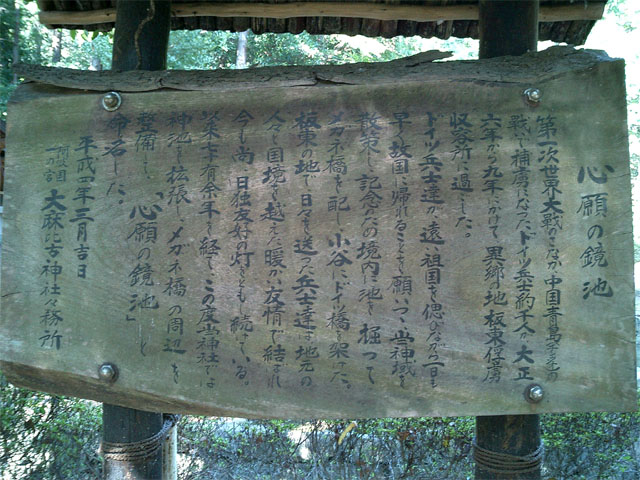 心願の鏡池
第一次世界大戦のさなか、中国青島
戦で捕虜になったドイツ兵士約千人が、大正
六年から九年にかけて異郷の地板東俘虜
収容所に過した。
ドイツ兵士達が、遠い祖国を偲びながら一日も
早く故国に帰れることを願いつゝ当神域を
散策し、記念のため境内に池を掘って
メガネ橋を配し、小谷にドイツ橋を架けた。
板東の地で日々を送った兵士達は地元の
人々と国境を越えた暖かい友情で結ばれ
今も尚、日独友好の灯をともし続けている。
七十有余年を経てこの度当神社では
神池を拡張し、メガネ橋の周辺を
整備し、「心願の鏡池」と
命名した。
平成 年三月吉日
阿波国一の宮 大麻比古神社々務所